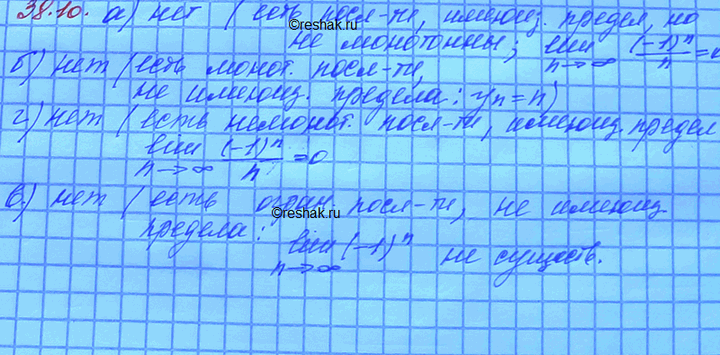 38.10. а) нет (есть посл-ти, имеющ. предел, но
©reshak.ru
не монотонны; lim n→∞ (-1)^n/n = 0
б) нет (есть монот. посл-ти,
не имеющ. предела: yn = n)
г) нет (есть немонот. посл-ти, имеющ. предел
lim n→∞ (-1)^n/n = 0
в) нет (есть огран. посл-ти, не имеющ.
©reshak.ru
предела: lim n→∞ (-1)^n не существ.